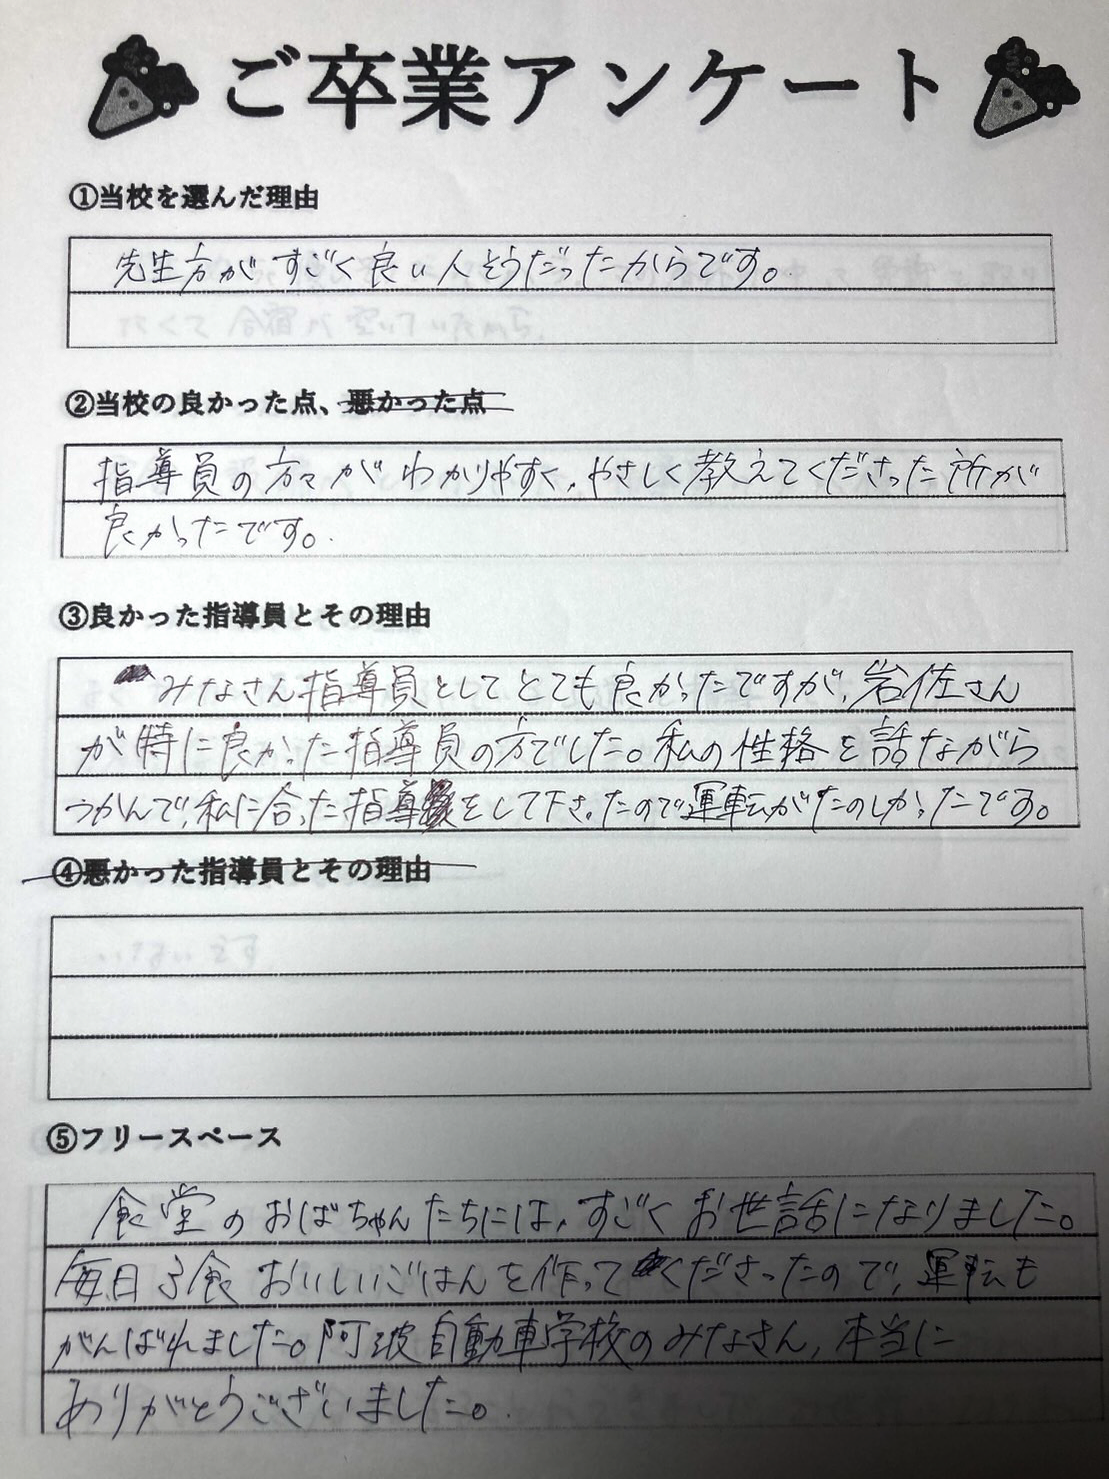 ご卒業アンケート
①当校を選んだ理由
先生方がすごく良い人そうだったからです。
②当校の良かった点、悪かった点
指導員の方々がわかりやすく、やさしく教えてくださった所が
良かったです。
③良かった指導員とその理由
みなさん指導員としてとても良かったですが、岩佐さん
が特に良かった指導員の方でした。私の性格を話ながら
つかんで、私に合った指導をして下さったので運転がたのしかったです。
④悪かった指導員とその理由
⑤フリースペース
食堂のおばちゃんたちには、すごくお世話になりました。
毎日3食おいしいごはんを作ってくださったので、運転も
がんばれました。阿波自動車学校のみなさん、本当に
ありがとうございました。